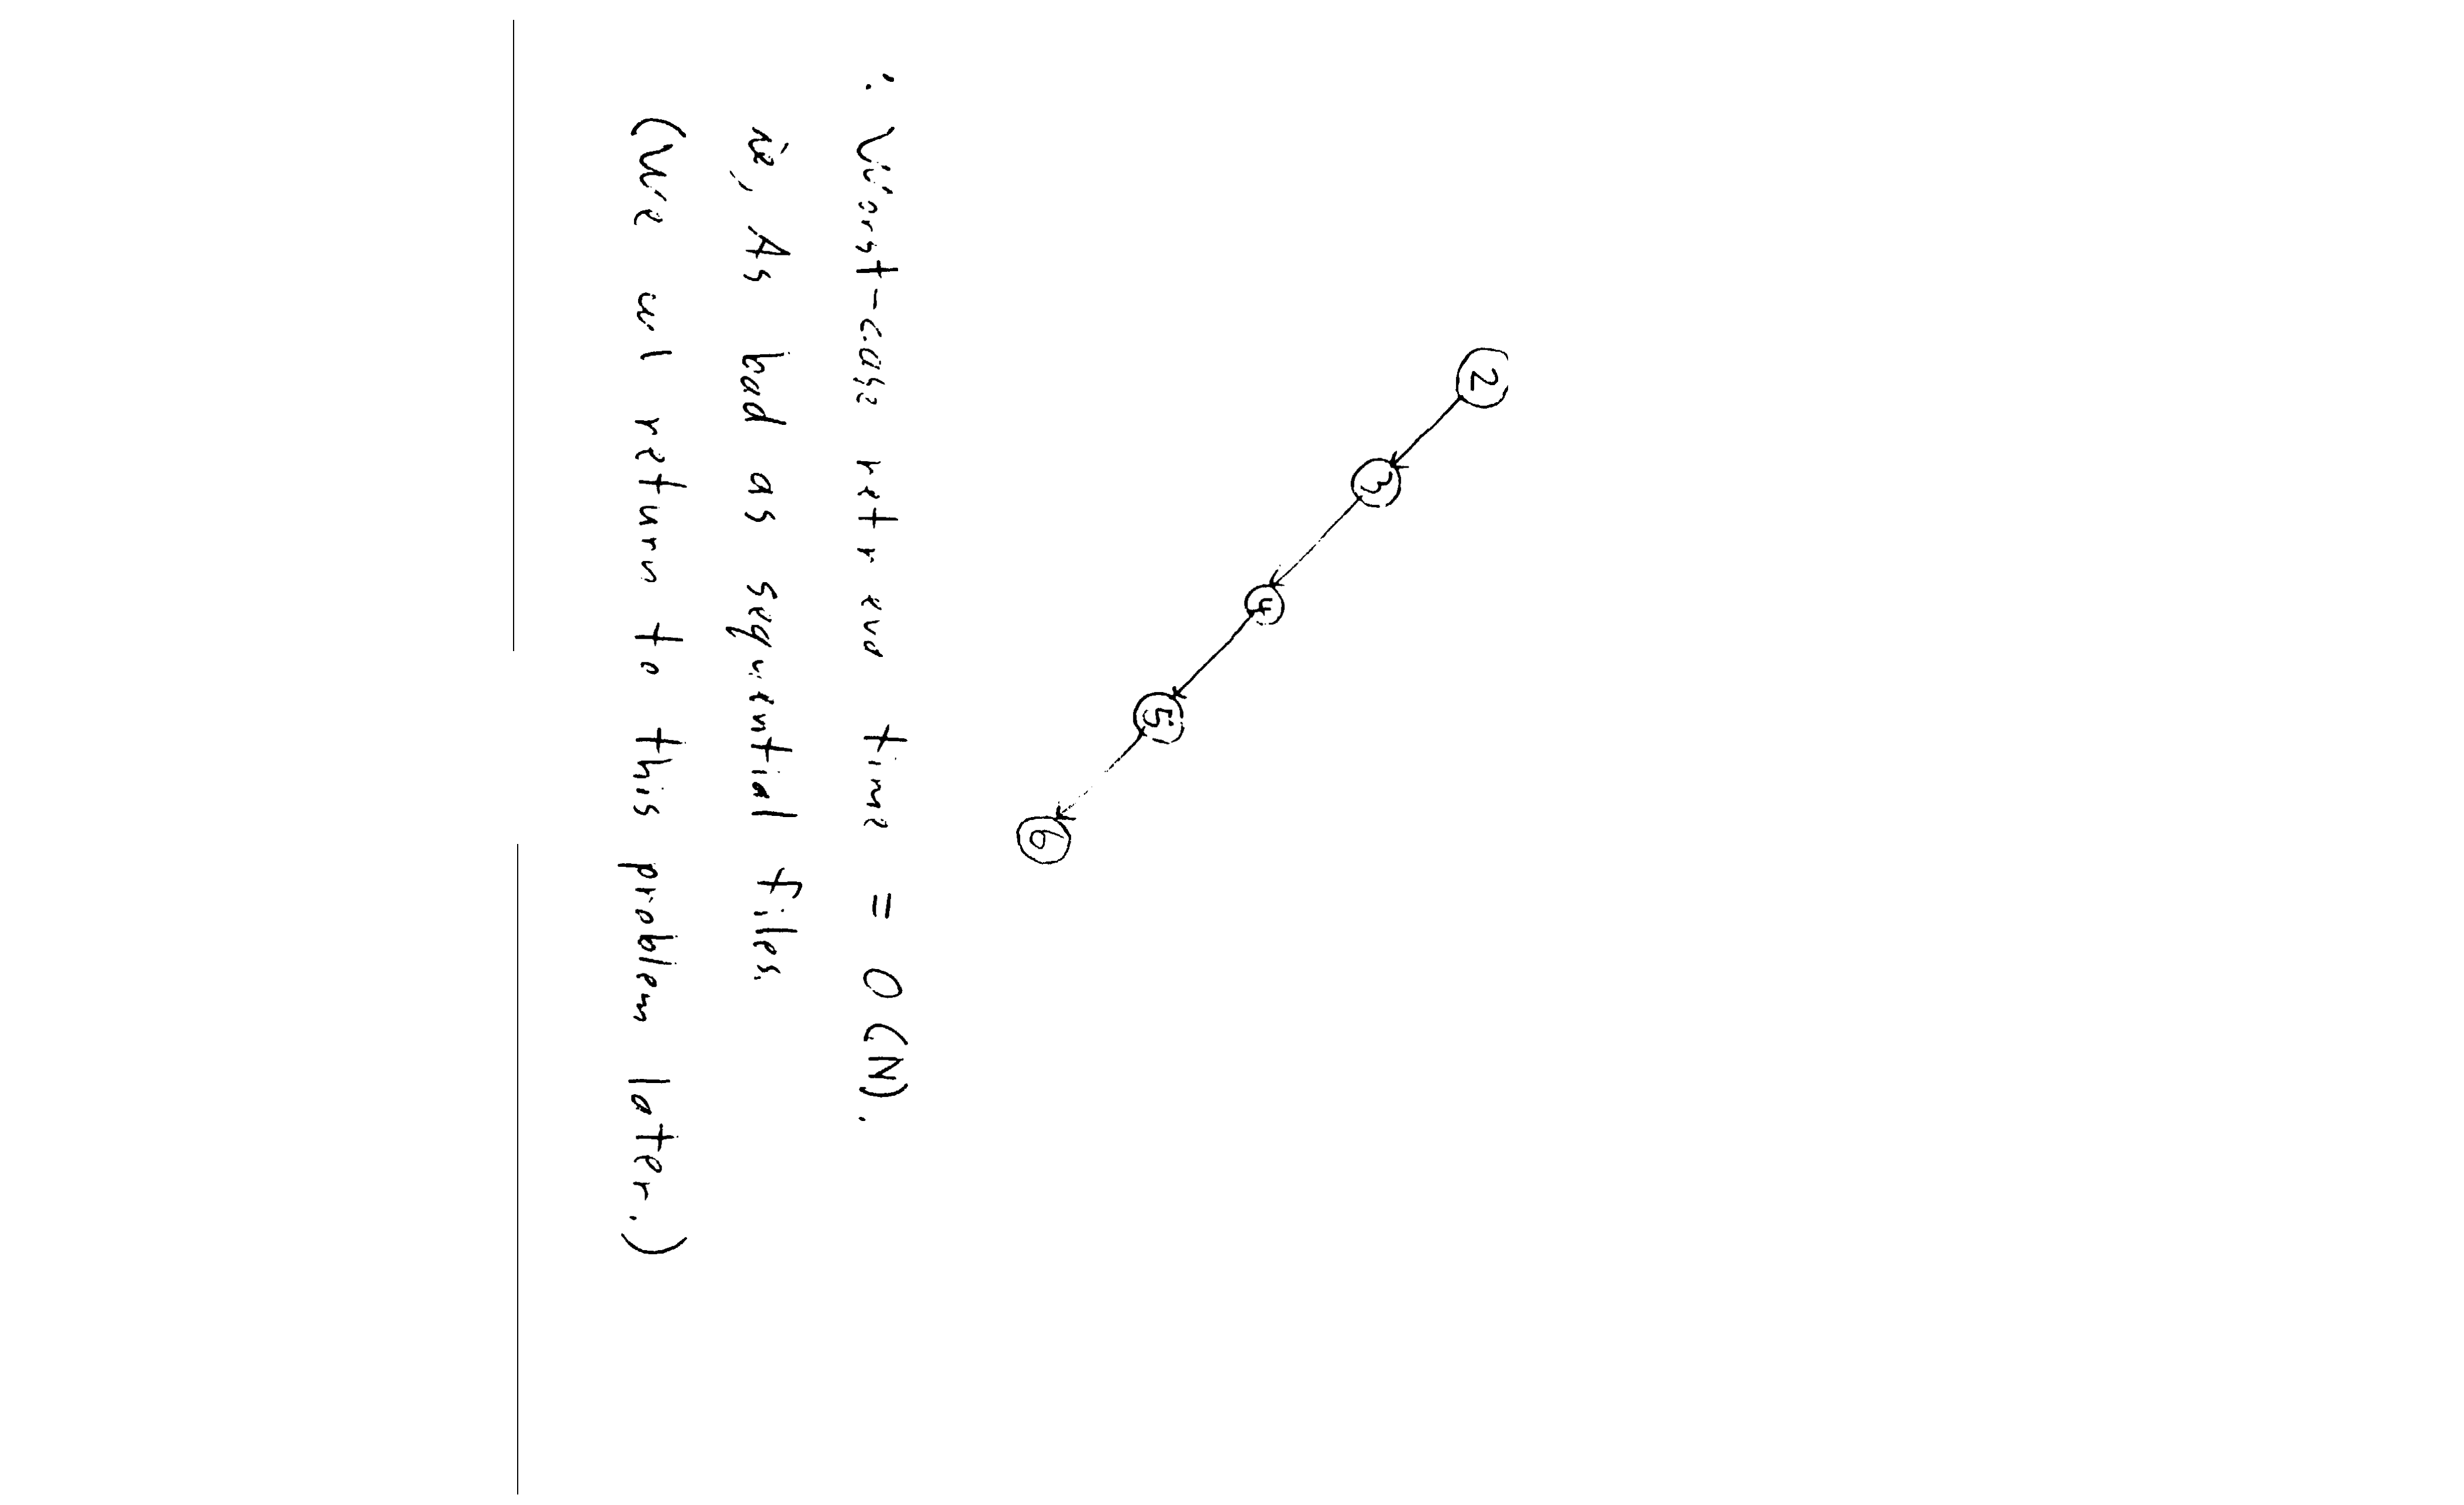 2
3
4
5
6
∴ Worst-case retrieval time = O(N).
ie, As bad as sequential files.
(We will return to this problem later.)